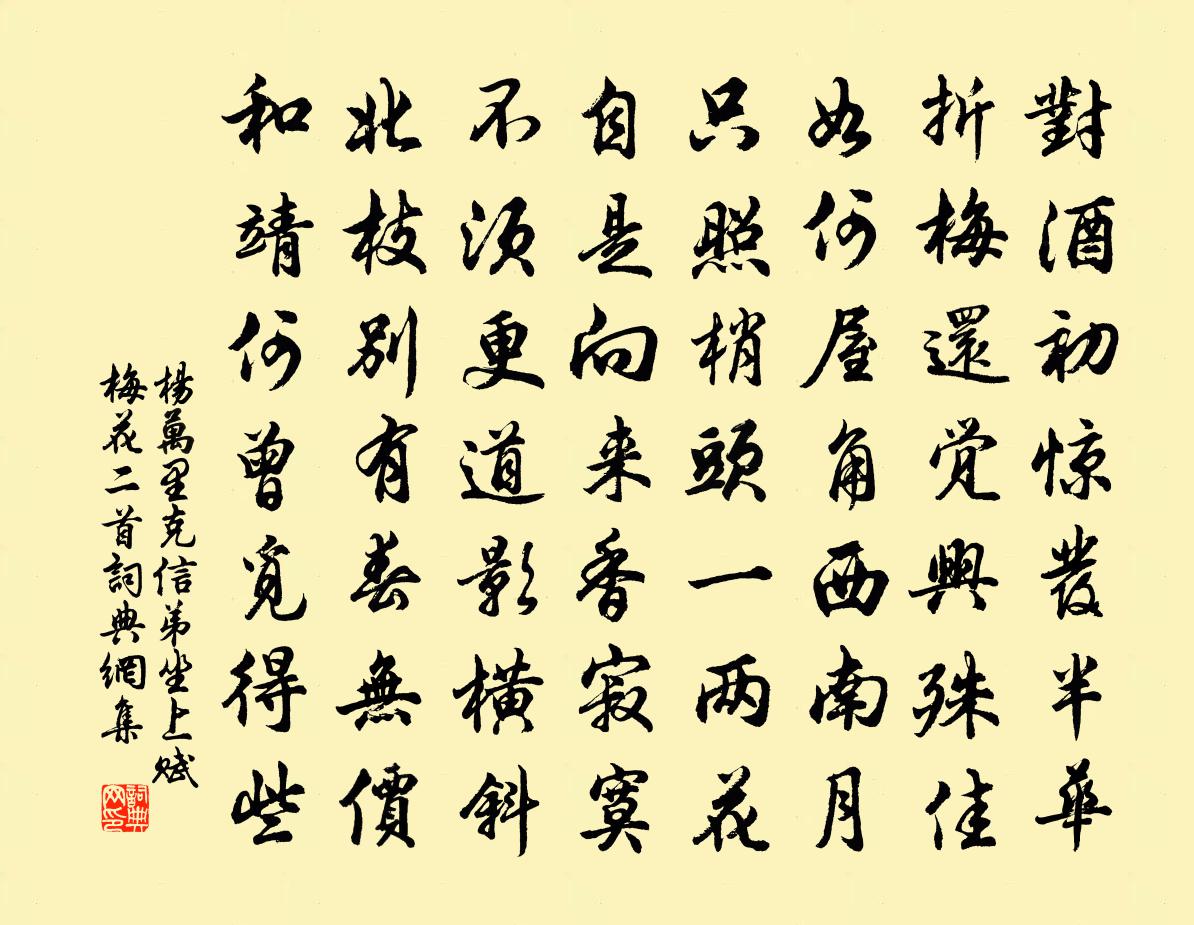 對酒初惊發半華
折梅還觉興殊佳
如何屋角西南月
只照梢頭一两花
自是向来香寂寞
不须更道影橫斜
北枝别有春無價
和靖何曾覓得些
楊萬里克信弟坐上赋
梅花二首詞典網集
詞典
网印